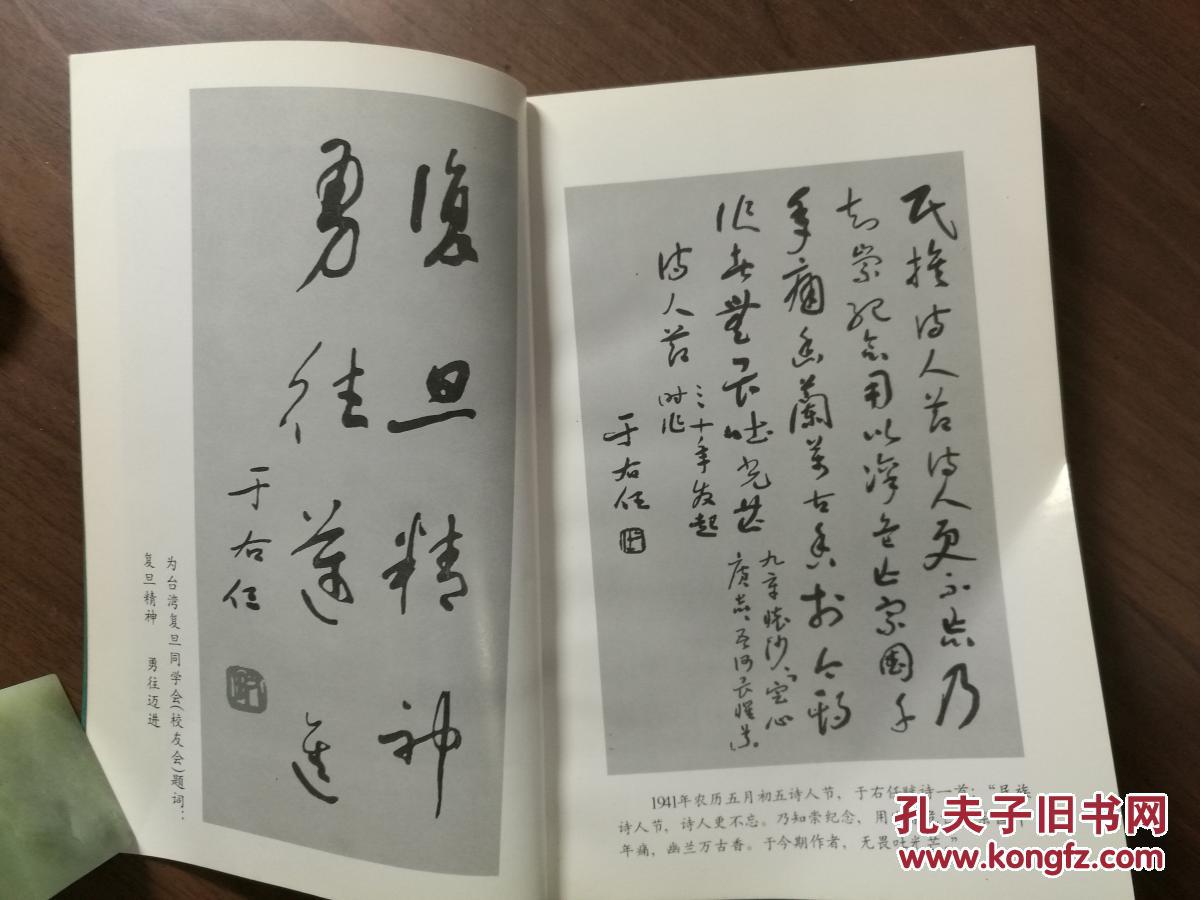 復旦精神
勇往邁進
于右任
为台湾复旦同学会(校友会)题词:
复旦精神 勇往迈进
民族诗人节诗人更不忘乃
知崇紀念用以懍危亡宗國千
年痛幽蘭萬古香於今期
作者無畏吐光芒
九章懷沙、定心
廣志、吾何畏懼兮。
诗人节
三十年发起
时作
于右任
1941年农历五月初五诗人节,于右任赋诗一首:“民族
诗人节,诗人更不忘。乃知崇纪念,用
年痛,幽兰万古香。于今期作者,无畏吐光芒。”
孔夫子旧书网
www.kongfz.com